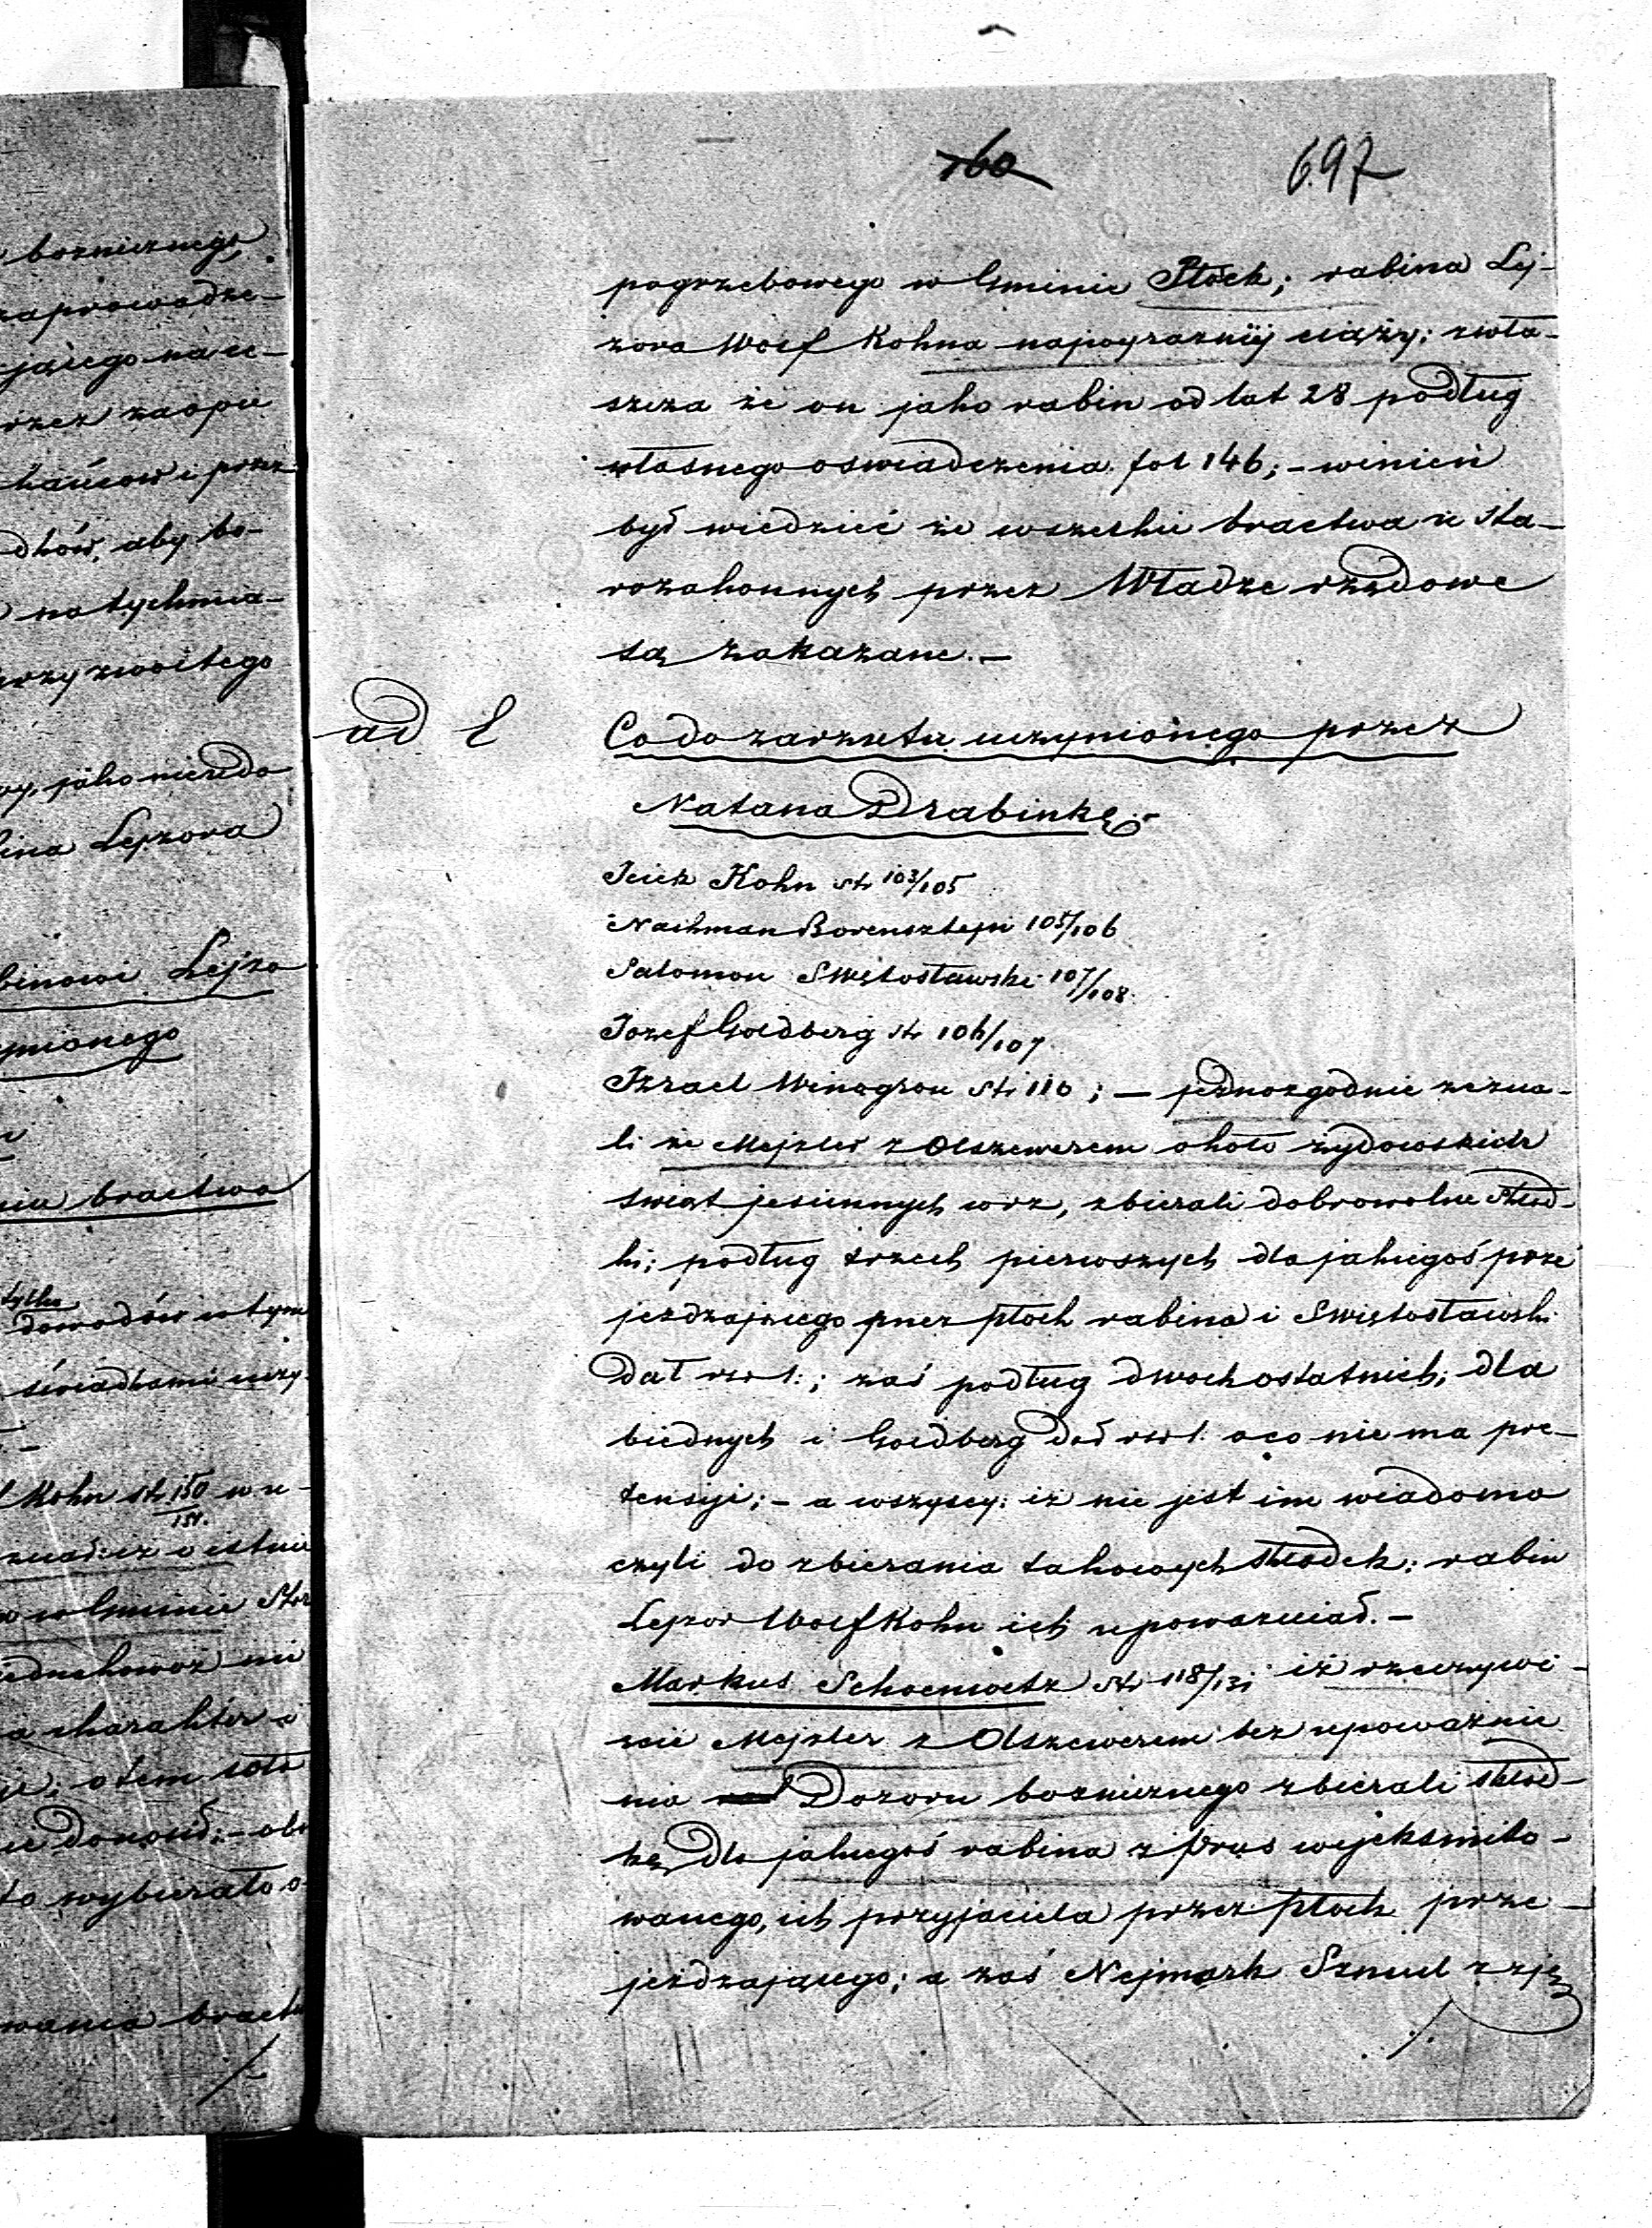 160 697
pogrzebowego w Gminie Płock; rabina Lej-
zora Wolf Kohna najwyrazniéj ciąży; zwła-
szcza że on jako rabin od lat 28 podług
własnego oswiadczenia fol 146; - winień
był wiedzieć że wszelkie bractwa u sta-
rozakonnych przez Władze rządowe
są zakazane. -
ad E Co do zarzutu uczynionego przez
Natana Drabinkę. -
Icick Kohn str 103/105
Nachman Borensztejn 105/106
Salomon Swiętosławski 107/108.
Jozef Goldberg str 106/107.
Izrael Winogron str 110; - jednozgodnie zezna-
li że Mejzler z Olszewerem około żydowskich
swiąt jesiennych wrz, zbierali dobrowolne skład-
ki; podług trzech pierwszych dla jakiegoś prze
jezdzającego przez Płock rabina i Swiętosławski
dał rsr 1.; zaś podług dwóch ostatnich; dla
biednych i Goldberg dał rsr 1. o co nie ma pre-
tensyi; - a wszyscy: iż nie jest im wiadomo
czyli do zbierania takowych składek: rabin
Lejzor Wolf Kohn ich upoważniał. -
Markus Schoenwetz str 118/131 iż rzeczywi-
scie Mejzler z Olszewerem bez upoważnie
nia Dozoru boznicznego zbierali skład-
kę dla jakiegoś rabina z Prus wyeksmito-
wanego, ich przyjaciela przez Płock prze-
jeżdzającego; a zaś Nejmark Szmul
./.
boznicznego,
zaprowadze-
jącego na ce-
przez zaopie
dków, aby bo-
natychmia-
przyzwoitego
jako nieudo
Lejzora
binowi Lejzo
ynionego
nia bractwa
tylko
dowodów w tym
świadkami uczy
Kohn str 150/151. w u-
w Gminie
a charakter i
o tem
to wybierało o
wania bract